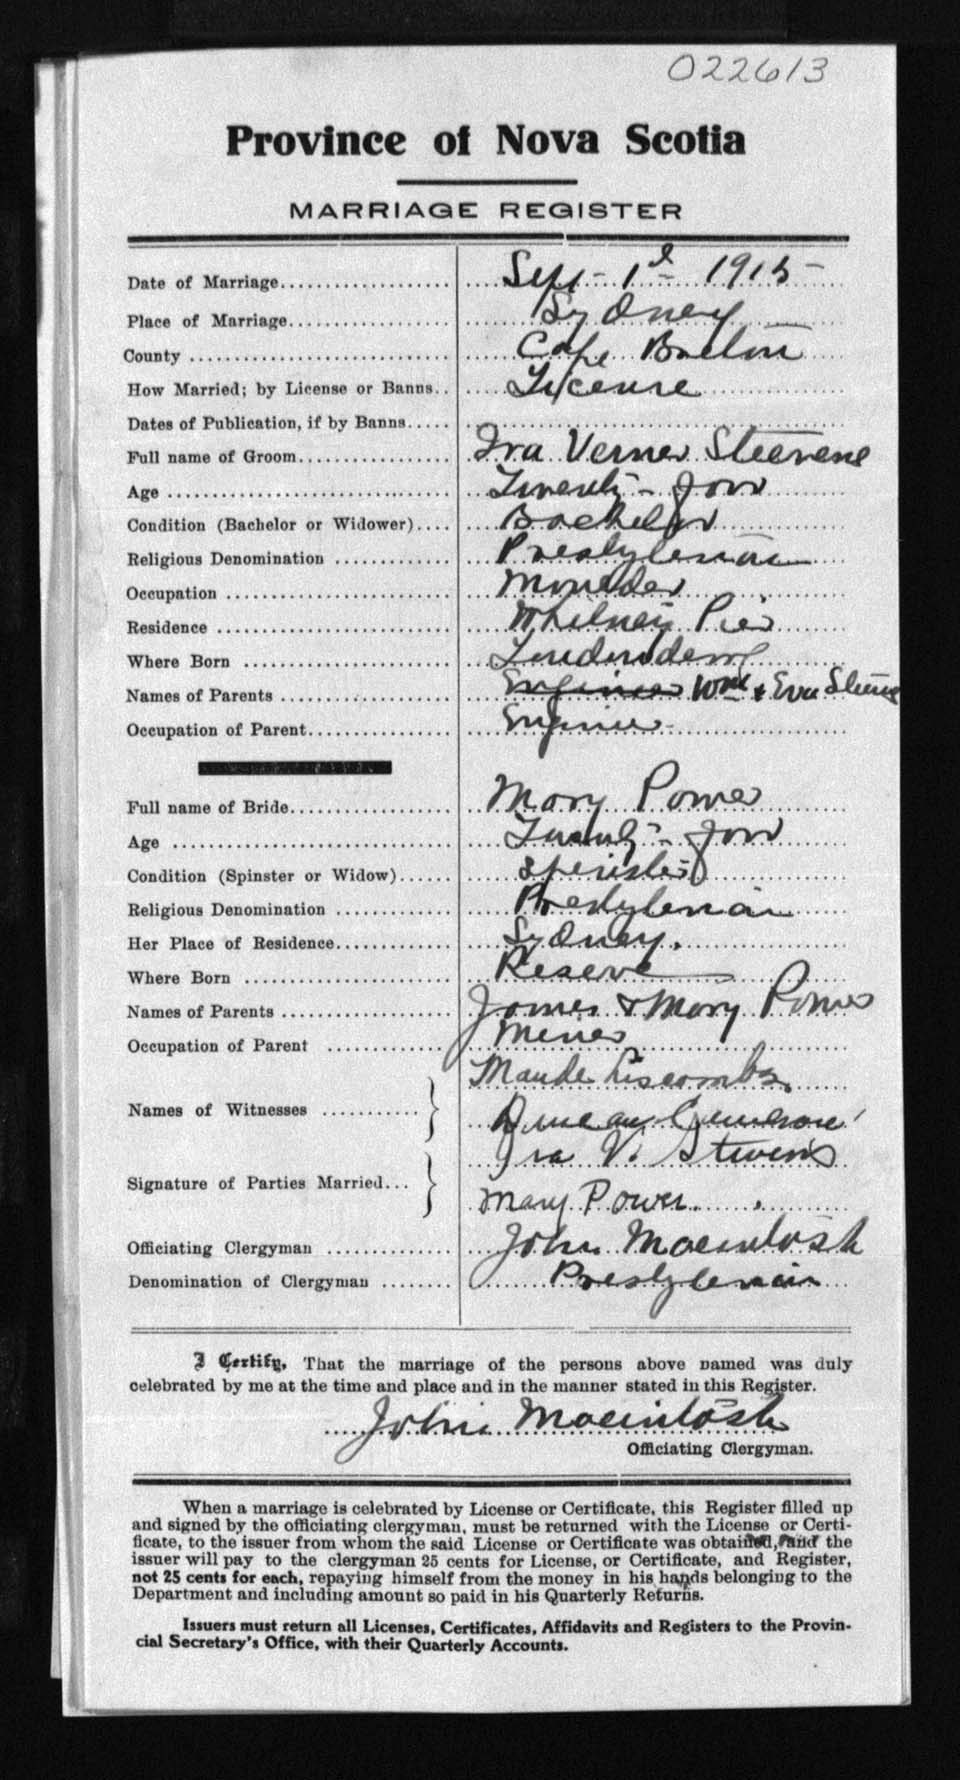 022613
Province of Nova Scotia
MARRIAGE REGISTER
Date of Marriage Sept - 1st - 1915 -
Place of Marriage Sydney
County Cape Breton
How Married; by License or Banns License
Dates of Publication, if by Banns
Full name of Groom Ira Verner Steevens
Age Twenty - four
Condition (Bachelor or Widower) Bachelor
Religious Denomination Presbyterian
Occupation Moulder
Residence Whitney Pier
Where Born Londonderry
Names of Parents Engineer Wm & Eva Steevens
Occupation of Parent Engineer
Full name of Bride Mary Power
Age Twenty - four
Condition (Spinster or Widow) Spinster
Religious Denomination Presbyterian
Her Place of Residence Sydney.
Where Born Reserve
Names of Parents James & Mary Power
Occupation of Parent Miner
Maude Liscombe
Names of Witnesses
Duncan
Ira V. Stevens
Signature of Parties Married
Mary Power
Officiating Clergyman John Macintosh
Denomination of Clergyman Presbyterian
I Certify, That the marriage of the persons above named was duly
celebrated by me at the time and place and in the manner stated in this Register.
John Macintosh
Officiating Clergyman.
When a marriage is celebrated by License or Certificate, this Register filled up
and signed by the officiating clergyman, must be returned with the License or Certi-
ficate, to the issuer from whom the said License or Certificate was obtained, and the
issuer will pay to the clergyman 25 cents for License, or Certificate, and Register,
not 25 cents for each, repaying himself from the money in his hands belonging to the
Department and including amount so paid in his Quarterly Returns.
Issuers must return all Licenses, Certificates, Affidavits and Registers to the Provin-
cial Secretary's Office, with their Quarterly Accounts.